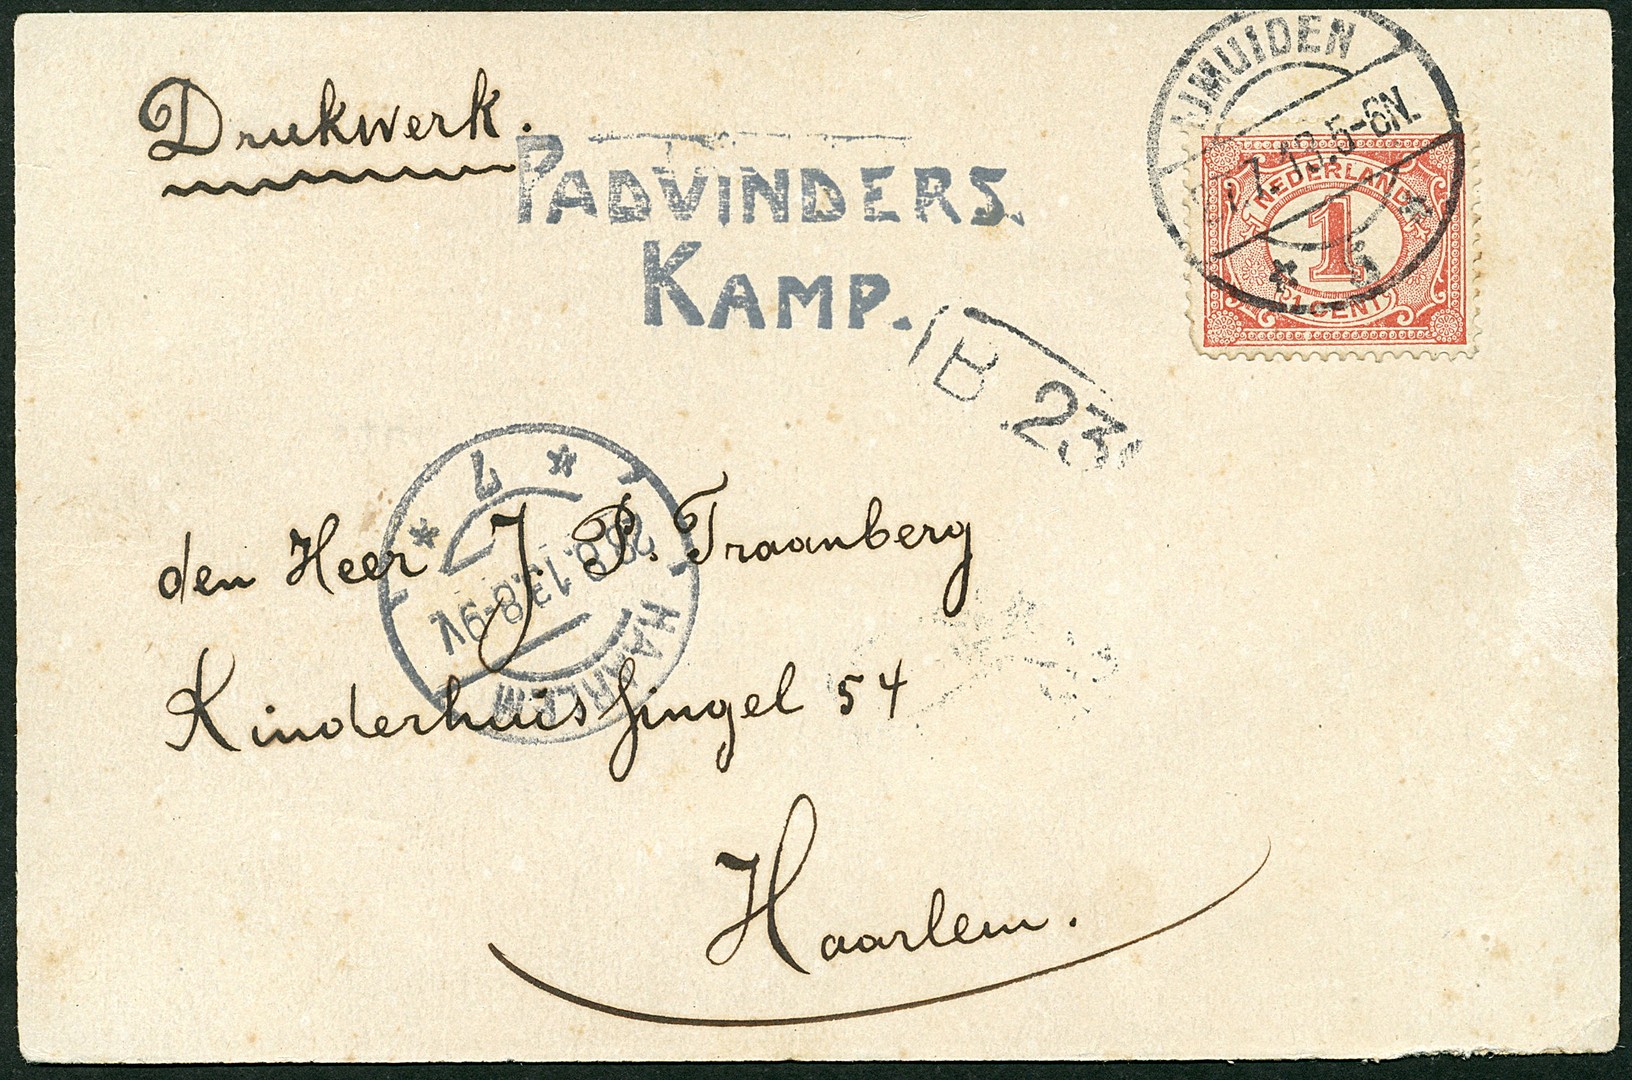 Drukwerk.
PADVINDERS.
KAMP.
IJMUIDEN
7.13.5-6N.
NEDERLAND
1
1 CENT
B 23
7
8.13.8-9V.
HAARLEM
den Heer J. P. Traanberg
Kinderhuissingel 54
Haarlem.